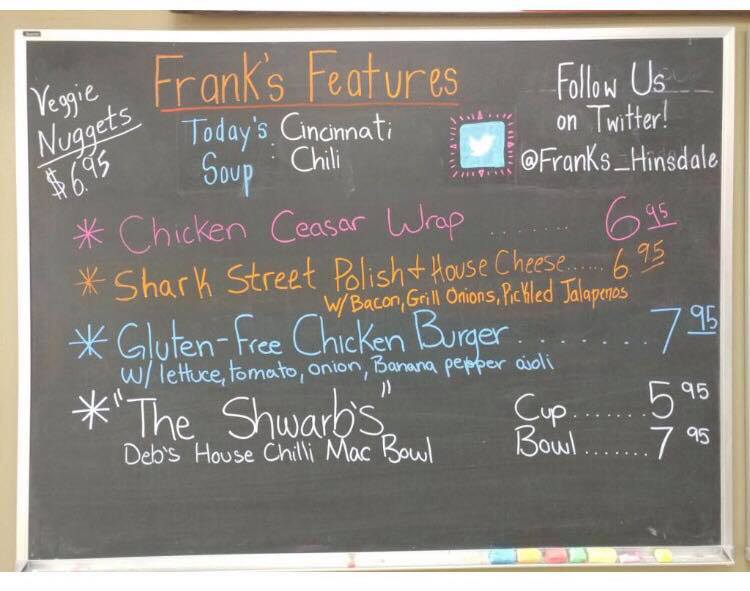 Frank's Features
Veggie
Nuggets
$6.95
Today's Soup: Cincinnati Chili
Follow Us
on Twitter!
@Franks_Hinsdale
* Chicken Ceasar Wrap ........ 6 95
* Shark Street Polish + House Cheese...... 6 95
w/ Bacon, Grill Onions, Pickled Jalapenos
* Gluten-Free Chicken Burger .......... 7 95
w/ lettuce, tomato, onion, Banana pepper aioli
* "The Shwarb's" Cup....... 5 95
Deb's House Chilli Mac Bowl Bowl ....... 7 95